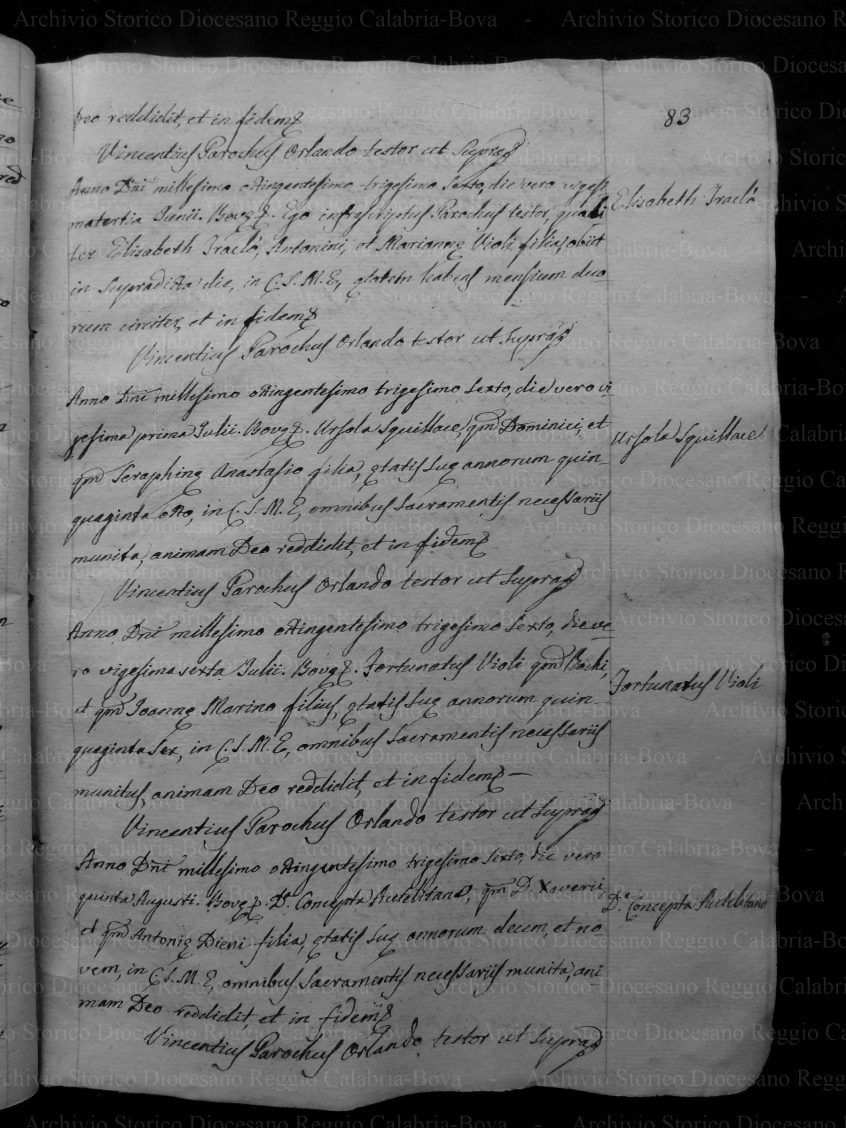 83
Deo reddidit, et in fidem
Vincentius Parochus Orlando testor ut supra
Anno Dni millesimo octingentesimo trigesimo sexto, die vero vigesi
matertia Junii. Bovæ. Ego infrascriptus Parochus testor, quali
ter Elisabeth Traclò, Antonini, et Mariannę Violi filia, obiit
in supradicta die, in C. S. M. E, ętatem habens mensium duo-
rum circiter, et in fidem
Vincentius Parochus Orlando testor ut supra
Elisabeth Traclò
Anno Dni millesimo octingentesimo trigesimo sexto, die vero vi
gesima prima Julii. Bovę. Ursola Squillace, qm Dominici, et
qm Seraphinę Anastasio filia, ętatis suę annorum quin-
quaginta octo, in C. S. M. E, omnibus sacramentis necessariis
munita, animam Deo reddidit, et in fidem
Vincentius Parochus Orlando testor ut supra
Ursola Squillace
Anno Dni millesimo octingentesimo trigesimo sexto, die ve-
ro vigesima sexta Julii. Bovę. Fortunatus Violi qm
et qm Joannę Marino filius, ętatis suę annorum quin-
quaginta sex, in C. S. M. E, omnibus sacramentis necessariis
munitus, animam Deo reddidit, et in fidem —
Vincentius Parochus Orlando testor ut supra
Fortunatus Violi
Anno Dni millesimo octingentesimo trigesimo sexto, die vero
quinta Augusti. Bovę. D.ª Concepta Autelitano, qm D. Xaverii,
et qm Antonię Dieni filia, ętatis suę annorum decem, et no
vem, in C. S. M. E, omnibus sacramentis necessariis munita, ani
mam Deo reddidit, et in fidem
Vincentius Parochus Orlando testor ut supra
D.ª Concepta Autelitano
Archivio Storico Diocesano Reggio Calabria-Bova